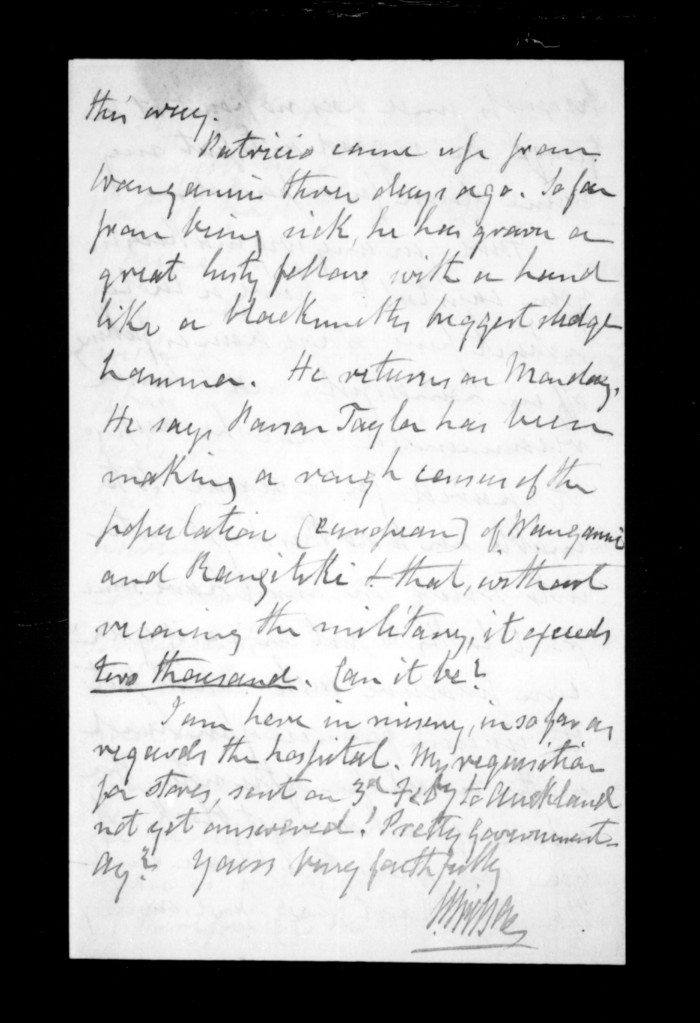 this way.
Patricio came up from
Wanganui three days ago. So far
from being sick, he has grown a
great lusty fellow with a hand
like a blacksmiths biggest sledge
hammer. He returns on Monday.
He says Parson Taylor has been
making a rough census of the
population (European) of Wanganui
and Rangitiki & that, without
reconing the military, it exceeds
two thousand. Can it be?
I am here in misery, in so far as
regards the hospital. My requisition
for stores, sent on 3rd Feby to Auckland
not yet answered! Pretty Government.
Ay? Yours very faithfully